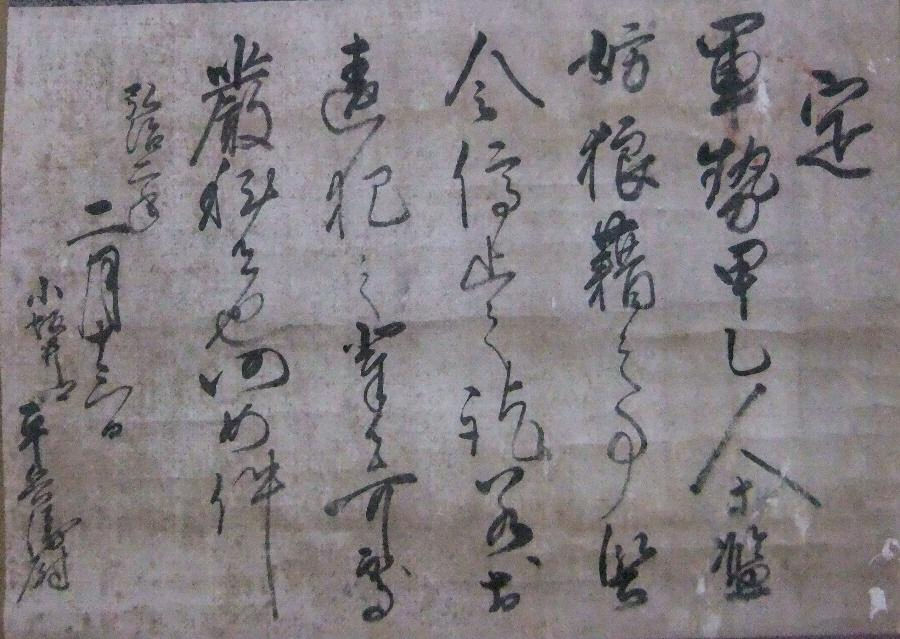 定
軍勢甲乙人等濫
妨狼藉之事堅
令停止之訖若於
違犯之輩者可處
嚴科者也仍如件
弘治二年
二月十三日
小坂井
平兵衛尉